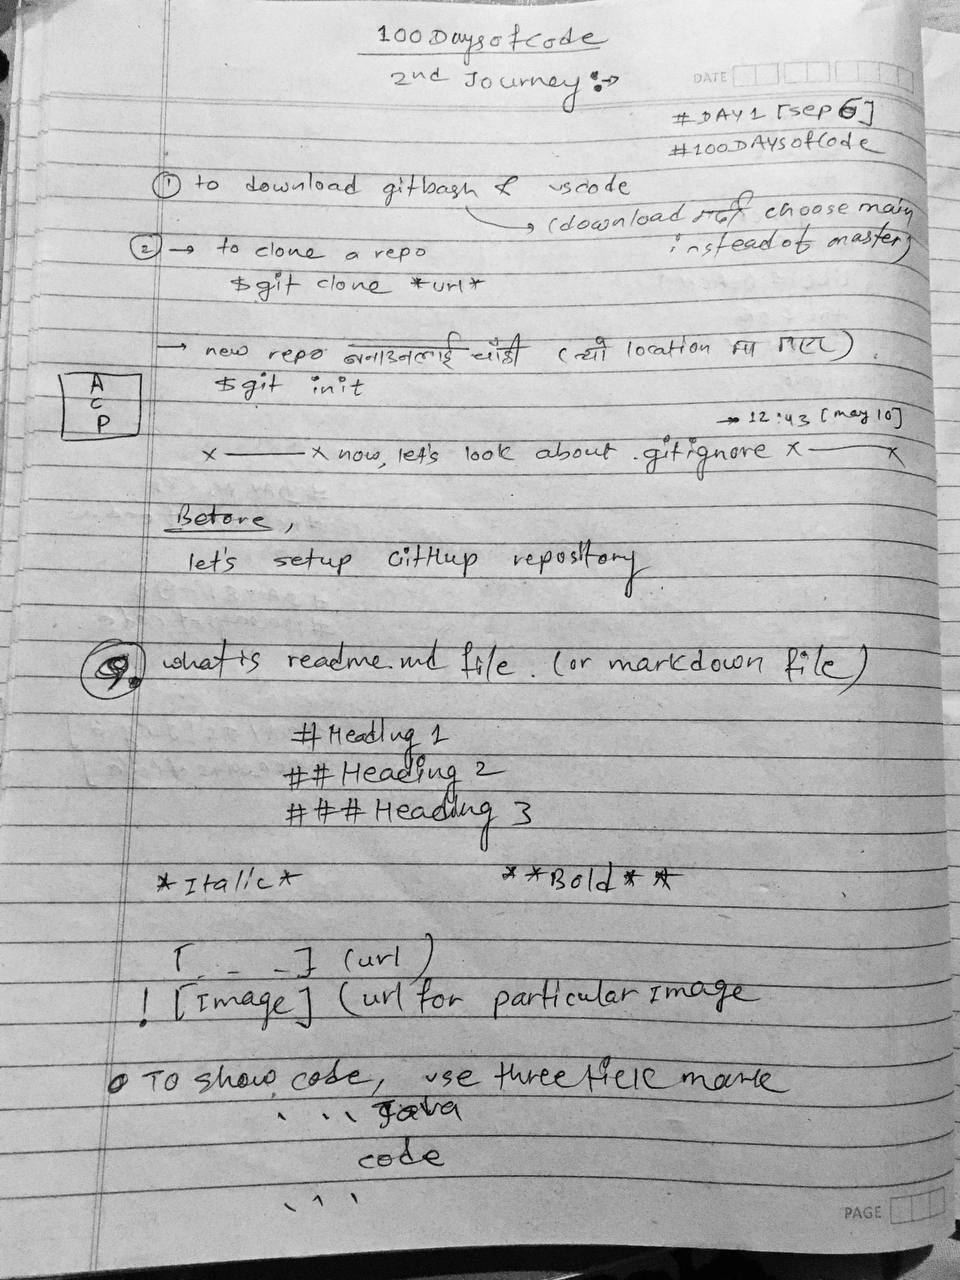 100DaysofCode
2nd Journey :->
DATE
#DAY1 [sep 6]
#100DAYsofCode
① to download gitbash & vscode
→ (download गर्दा choose main
instead of master)
② → to clone a repo
$git clone *url*
→ new repo बनाउनलाई चाँही (त्यो location मा गएर)
$git init
A
C
P
→ 12:43 [may 10]
x ——— x now, let's look about .gitignore x ——— x
Before,
let's setup GitHup repository
Q. what is readme.md file. (or markdown file)
# Heading 1
## Heading 2
### Heading 3
*Italic* **Bold**
[_ _ _] (url)
! [Image] (url for particular Image
• To show code, use three tick mark
``` Java
code
```
PAGE